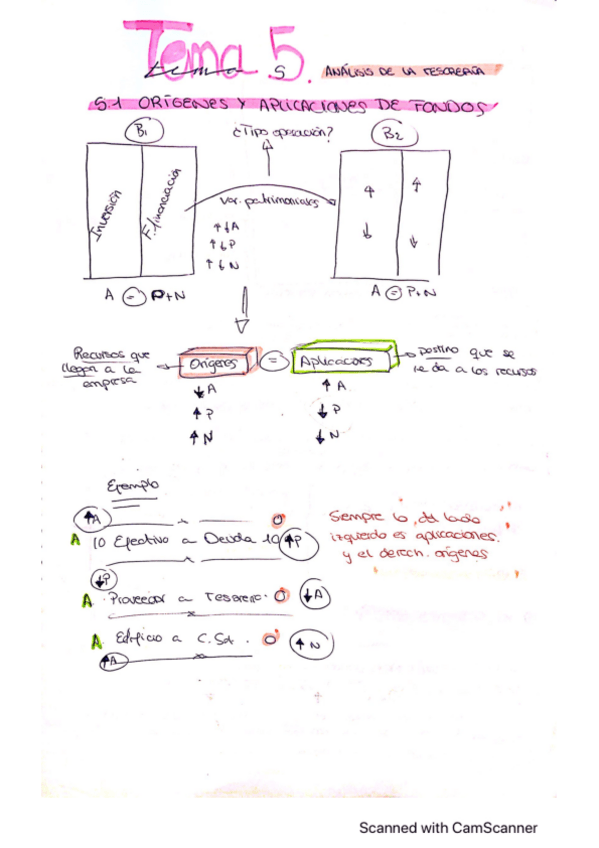 Tema 5.
tema 5
ANÁLISIS DE LA TESORERÍA
5.1 ORÍGENES Y APLICACIONES DE FONDOS
B1
¿Tipo operación?
B2
Inversión
Financiación
Var. patrimoniales
↑↓A
↑↓P
↑↓N
↑ ↑
↓ ↓
A = P+N
A = P+N
Recursos que
llegan a la
empresa
Orígenes = Aplicaciones
Destino que se
le da a los recursos
↓A ↑A
↑P ↓P
↑N ↓N
Ejemplo
↑A
A 10 Efectivo a Deuda 10 O ↑P
Siempre lo del lado
izquierdo es aplicaciones.
y el derech. orígenes
↓P
A Proveedor a Tesorero. O ↓A
A Edificio a C. Sot. O ↑N
↑A
Scanned with CamScanner